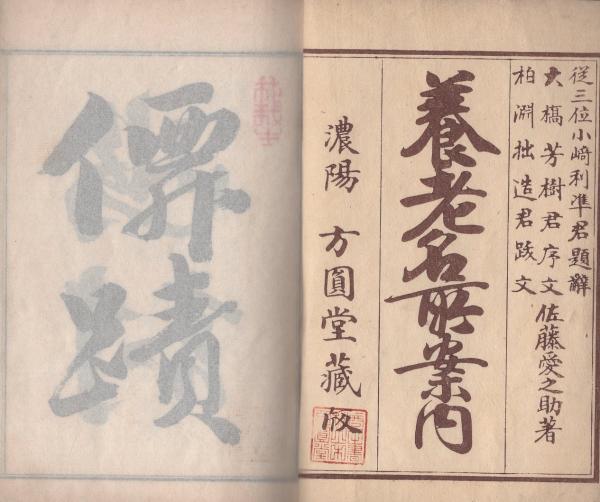 從三位小﨑利準君題辭
大橋芳樹君序文 佐藤愛之助著
柏淵拙造君跋文
養老名所案内
濃陽 方圓堂藏版
僊蹟